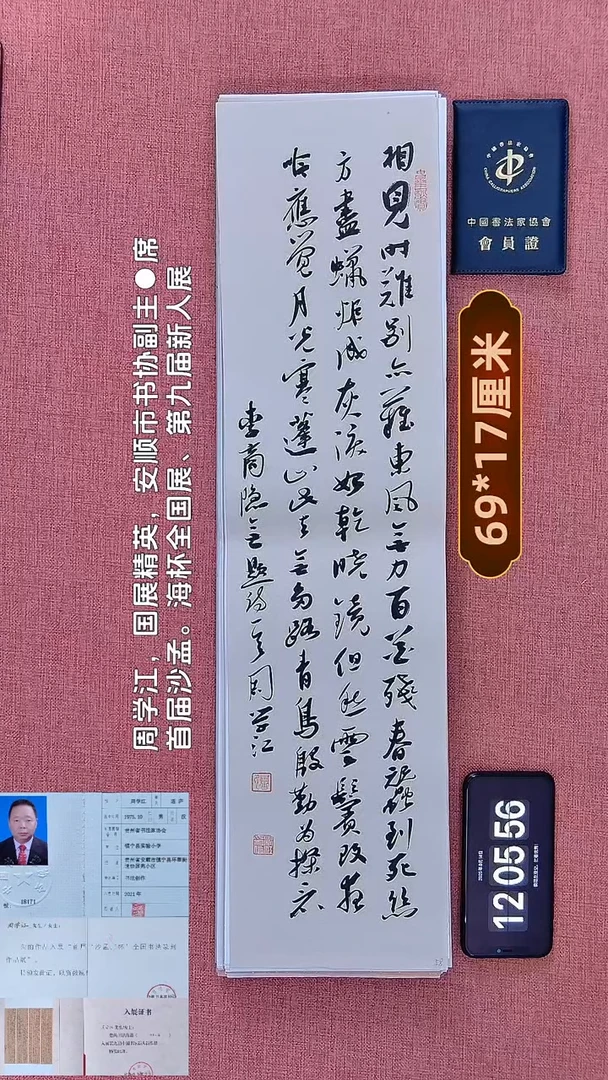 相見时難别亦難東風無力百花殘春蠶到死絲
方盡蠟炬成灰淚始乾曉鏡但愁雲鬢改夜
吟應覺月光寒蓬山此去無多路青鳥殷勤为探看
李商隐無題诗一首周学江
中國書法家協會
會員證
69*17厘米
周学江，国展精英，安顺市书协副主●席
首届沙孟。海杯全国展、第九届新人展
12 05 56
入展证书